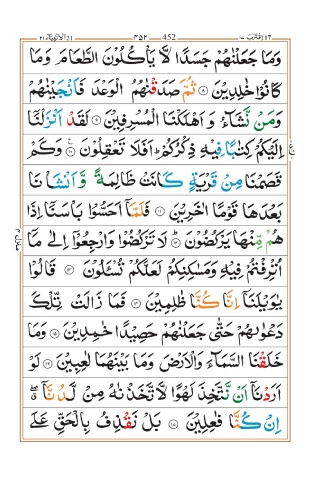 اقترب ١٧ 452 ٣٥٢ الانبیاء ٢١
وَمَا جَعَلْنٰهُمْ جَسَدًا لَّا يَاْكُلُوْنَ الطَّعَامَ وَمَا
كَانُوْا خٰلِدِيْنَ ۝۸ ثُمَّ صَدَقْنٰهُمُ الْوَعْدَ فَاَنْجَيْنٰهُمْ
وَمَنْ نَّشَآءُ وَ اَهْلَكْنَا الْمُسْرِفِيْنَ ۝۹ لَقَدْ اَنْزَلْنَاۤ
اِلَيْكُمْ كِتٰبًا فِيْهِ ذِكْرُكُمْ ؕ اَفَلَا تَعْقِلُوْنَ ۝۱۰ وَكَمْ
قَصَمْنَا مِنْ قَرْيَةٍ كَانَتْ ظَالِمَةً وَّ اَنْشَاْنَا
بَعْدَهَا قَوْمًا اٰخَرِيْنَ ۝۱۱ فَلَمَّاۤ اَحَسُّوْا بَاْسَنَاۤ اِذَا
هُمْ مِّنْهَا يَرْكُضُوْنَ ۝۱۲ لَا تَرْكُضُوْا وَارْجِعُوْۤا اِلٰى مَاۤ
اُتْرِفْتُمْ فِيْهِ وَمَسٰكِنِكُمْ لَعَلَّكُمْ تُسْـَٔلُوْنَ ۝۱۳ قَالُوْا
يٰوَيْلَنَاۤ اِنَّا كُنَّا ظٰلِمِيْنَ ۝۱۴ فَمَا زَالَتْ تِّلْكَ
دَعْوٰىهُمْ حَتّٰى جَعَلْنٰهُمْ حَصِيْدًا خٰمِدِيْنَ ۝۱۵ وَمَا
خَلَقْنَا السَّمَآءَ وَالْاَرْضَ وَمَا بَيْنَهُمَا لٰعِبِيْنَ ۝۱۶ لَوْ
اَرَدْنَاۤ اَنْ نَّتَّخِذَ لَهْوًا لَّاتَّخَذْنٰهُ مِنْ لَّدُنَّاۤ ۖۗ
اِنْ كُنَّا فٰعِلِيْنَ ۝۱۷ بَلْ نَقْذِفُ بِالْحَقِّ عَلَى